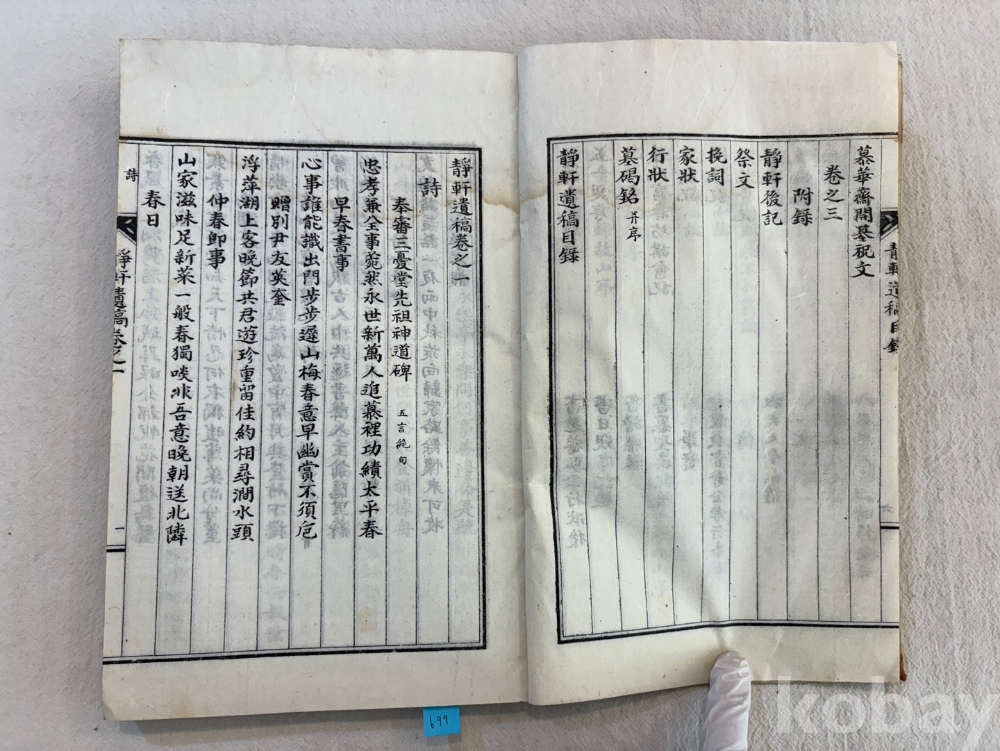 慕華齋開基祝文
卷之三
附錄
靜軒後記
祭文
挽詞
家狀
行狀
墓碣銘 并序
靜軒遺稿目錄
靜軒遺稿目錄
六
靜軒遺稿卷之一
詩
奉審三憂堂先祖神道碑 五言絶句
忠孝兼全事宛然永世新萬人追慕裡功績太平春
早春書事
心事誰能識出門步步遲山梅春意早幽賞不須卮
贈別尹友英奎
浮萍湖上客晩節共君遊珍重留佳約相尋澗水頭
仲春卽事
山家滋味足新菜一般春獨啖非吾意晩朝送北隣
春日
詩
靜軒遺稿卷之一
一
699
kobay